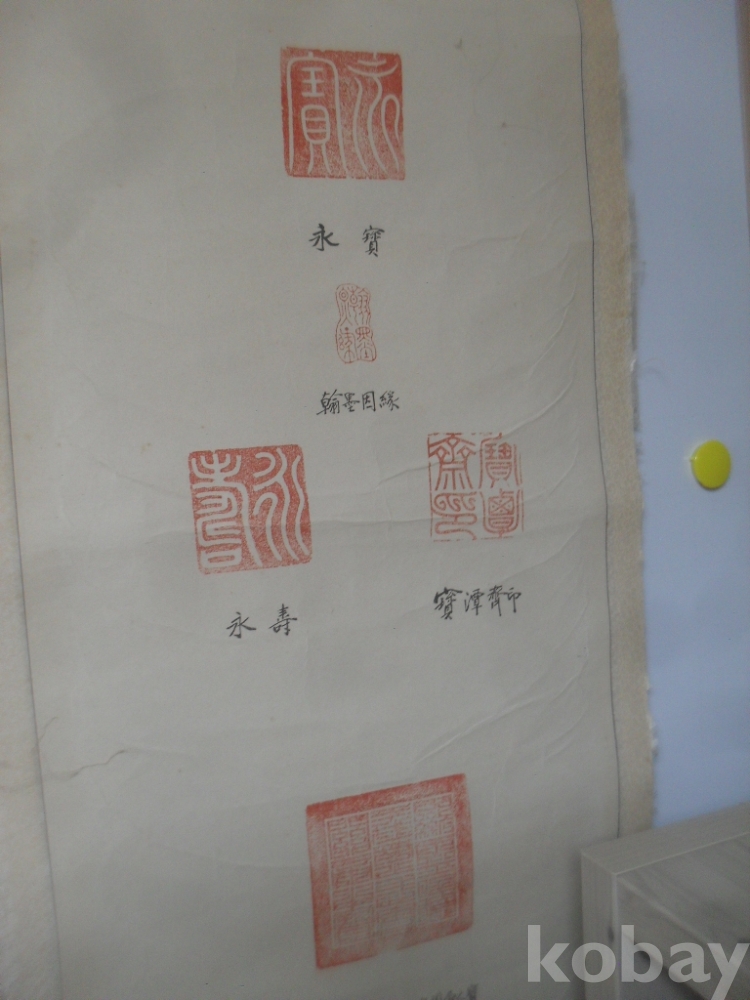 永寶
永寶
翰墨因緣
翰墨因緣
永壽
寶潭齋印
永壽
寶潭齋印
kobay